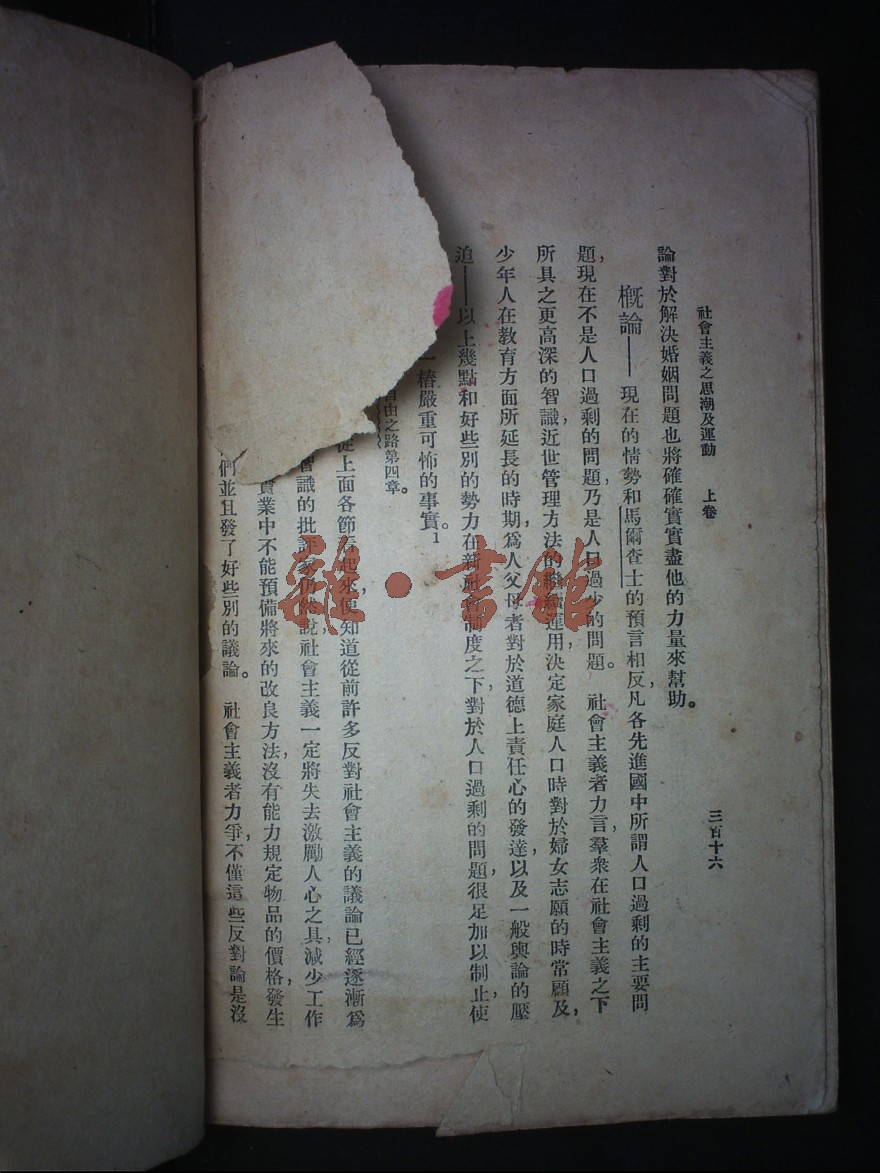 社會主義之思潮及運動 上卷 三百十六
論對於解決婚姻問題也將確確實實盡他的力量來幫助。
概論——現在的情勢和馬爾查士的預言相反,凡各先進國中所謂人口過剩的主要問
題,現在不是人口過剩的問題,乃是人口過少的問題。社會主義者力言,羣衆在社會主義之下
所具之更高深的智識近世管理方法的繼續運用,決定家庭人口時對於婦女志願的時常顧及,
少年人在教育方面所延長的時期,爲人父母者對於道德上責任心的發達,以及一般輿論的壓
迫——以上幾點和好些別的勢力在新社會制度之下,對於人口過剩的問題,很足加以制止,使
一樁嚴重可怖的事實。1
自由之路第四章。
從上面各節看起來,便知道從前許多反對社會主義的議論已經逐漸爲
智識的批評家仍然說,社會主義一定將失去激勵人心之具,減少工作
實業中不能預備將來的改良方法,沒有能力規定物品的價格,發生
們並且發了好些別的議論。社會主義者力爭,不僅這些反對論是沒
雜·書館